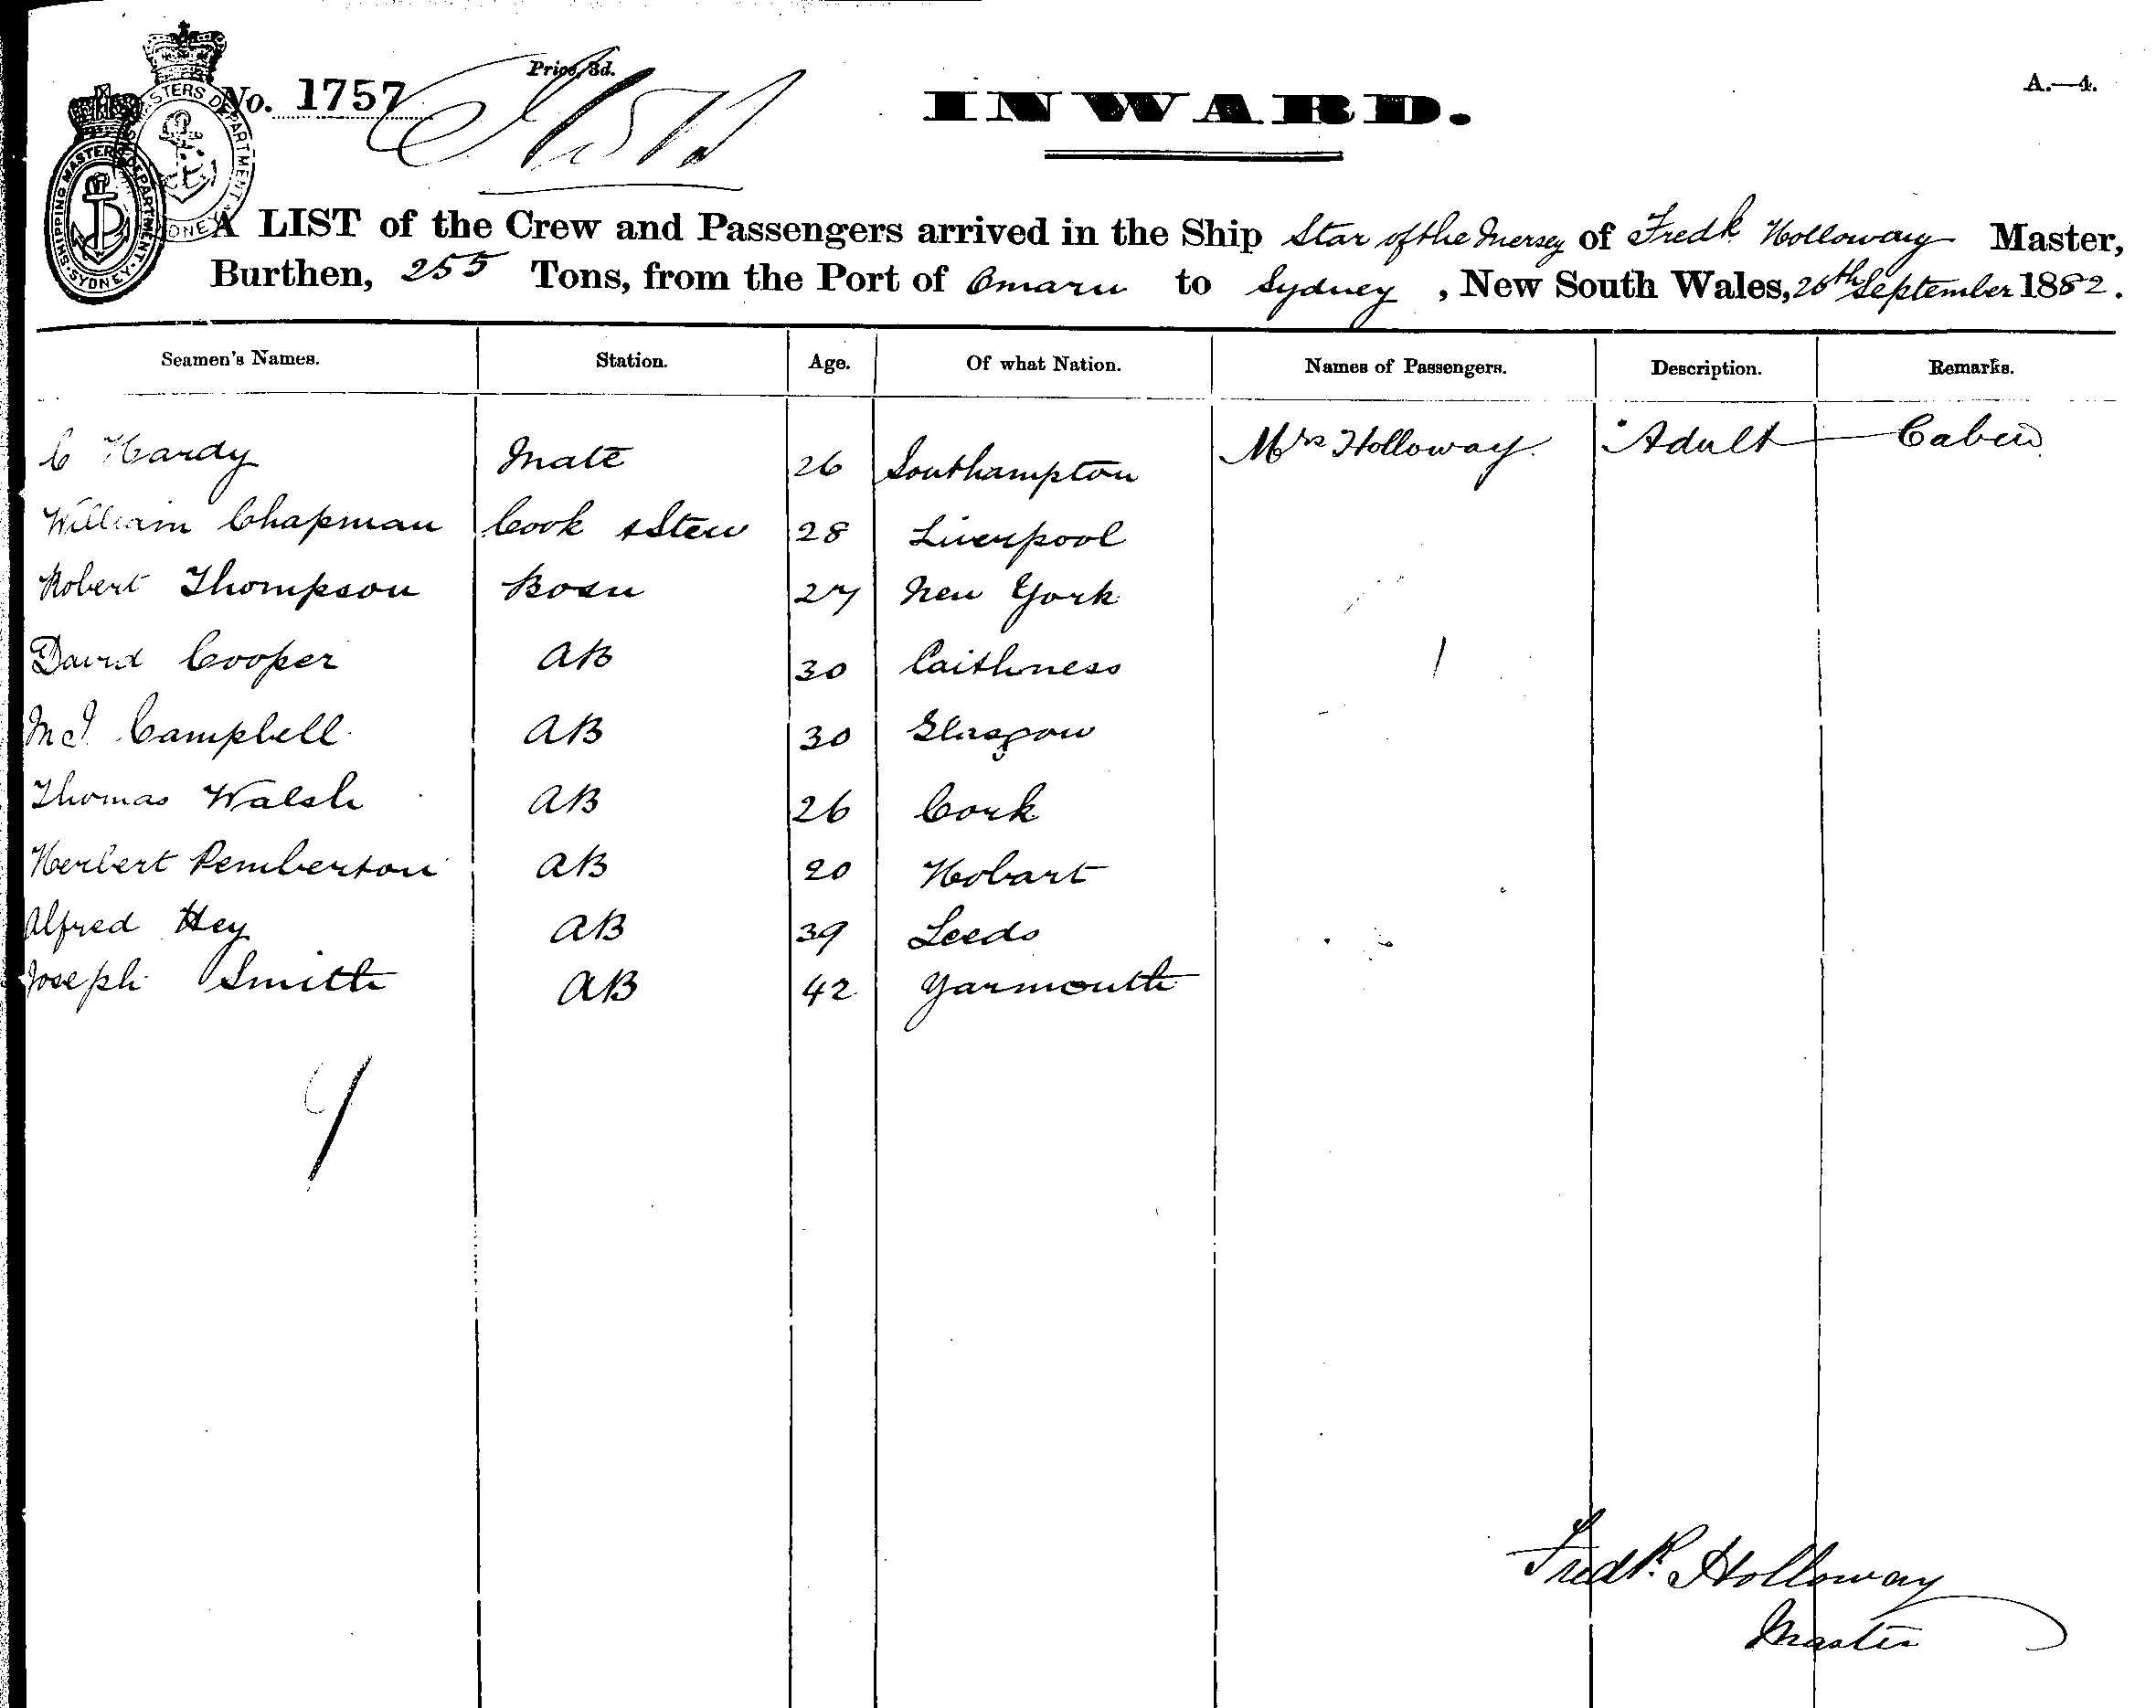 No. 1757
Price, 3d.
INWARD.
A.—4.
SHIPPING MASTERS DEPARTMENT. SYDNEY.
A LIST of the Crew and Passengers arrived in the Ship Star of the Mersey of Fredk Holloway Master,
Burthen, 255 Tons, from the Port of Omaru to Sydney, New South Wales, 26th September 1882.
Seamen's Names. Station. Age. Of what Nation. Names of Passengers. Description. Remarks.
C Hardy Mate 26 Southampton Mrs Holloway. Adult Cabin
William Chapman Cook & Stew 28 Liverpool
Robert Thompson Bosn 27 New York
David Cooper AB 30 Caithness
Campbell AB 30 Glasgow
Thomas Walsh AB 26 Cork
Herbert Pemberton AB 20 Hobart
Alfred Hey AB 39 Leeds
Joseph Smith AB 42 Yarmouth
9
Fredk. Holloway
Master